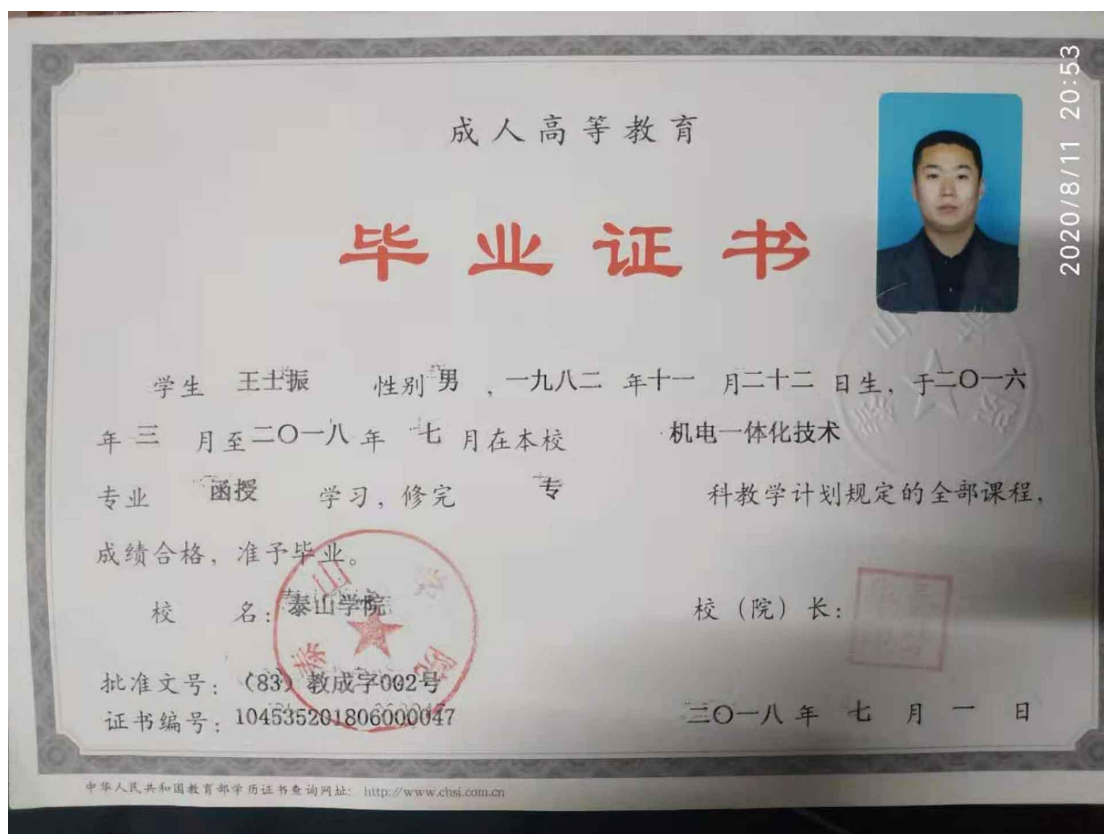 成人高等教育
毕业证书
学生 王士振 性别 男 ，一九八二 年十一 月二十二 日生，于二〇一六
年 三 月至二〇一八年 七 月在本校 机电一体化技术
专业 函授 学习，修完 专 科教学计划规定的全部课程，
成绩合格，准予毕业。
校 名：泰山学院
校（院）长：
泰山学院
批准文号：（83）教成字002号
证书编号：104535201806000047
二〇一八年 七 月 一 日
中华人民共和国教育部学历证书查询网址： http://www.chsi.com.cn
2020/8/11 20:53